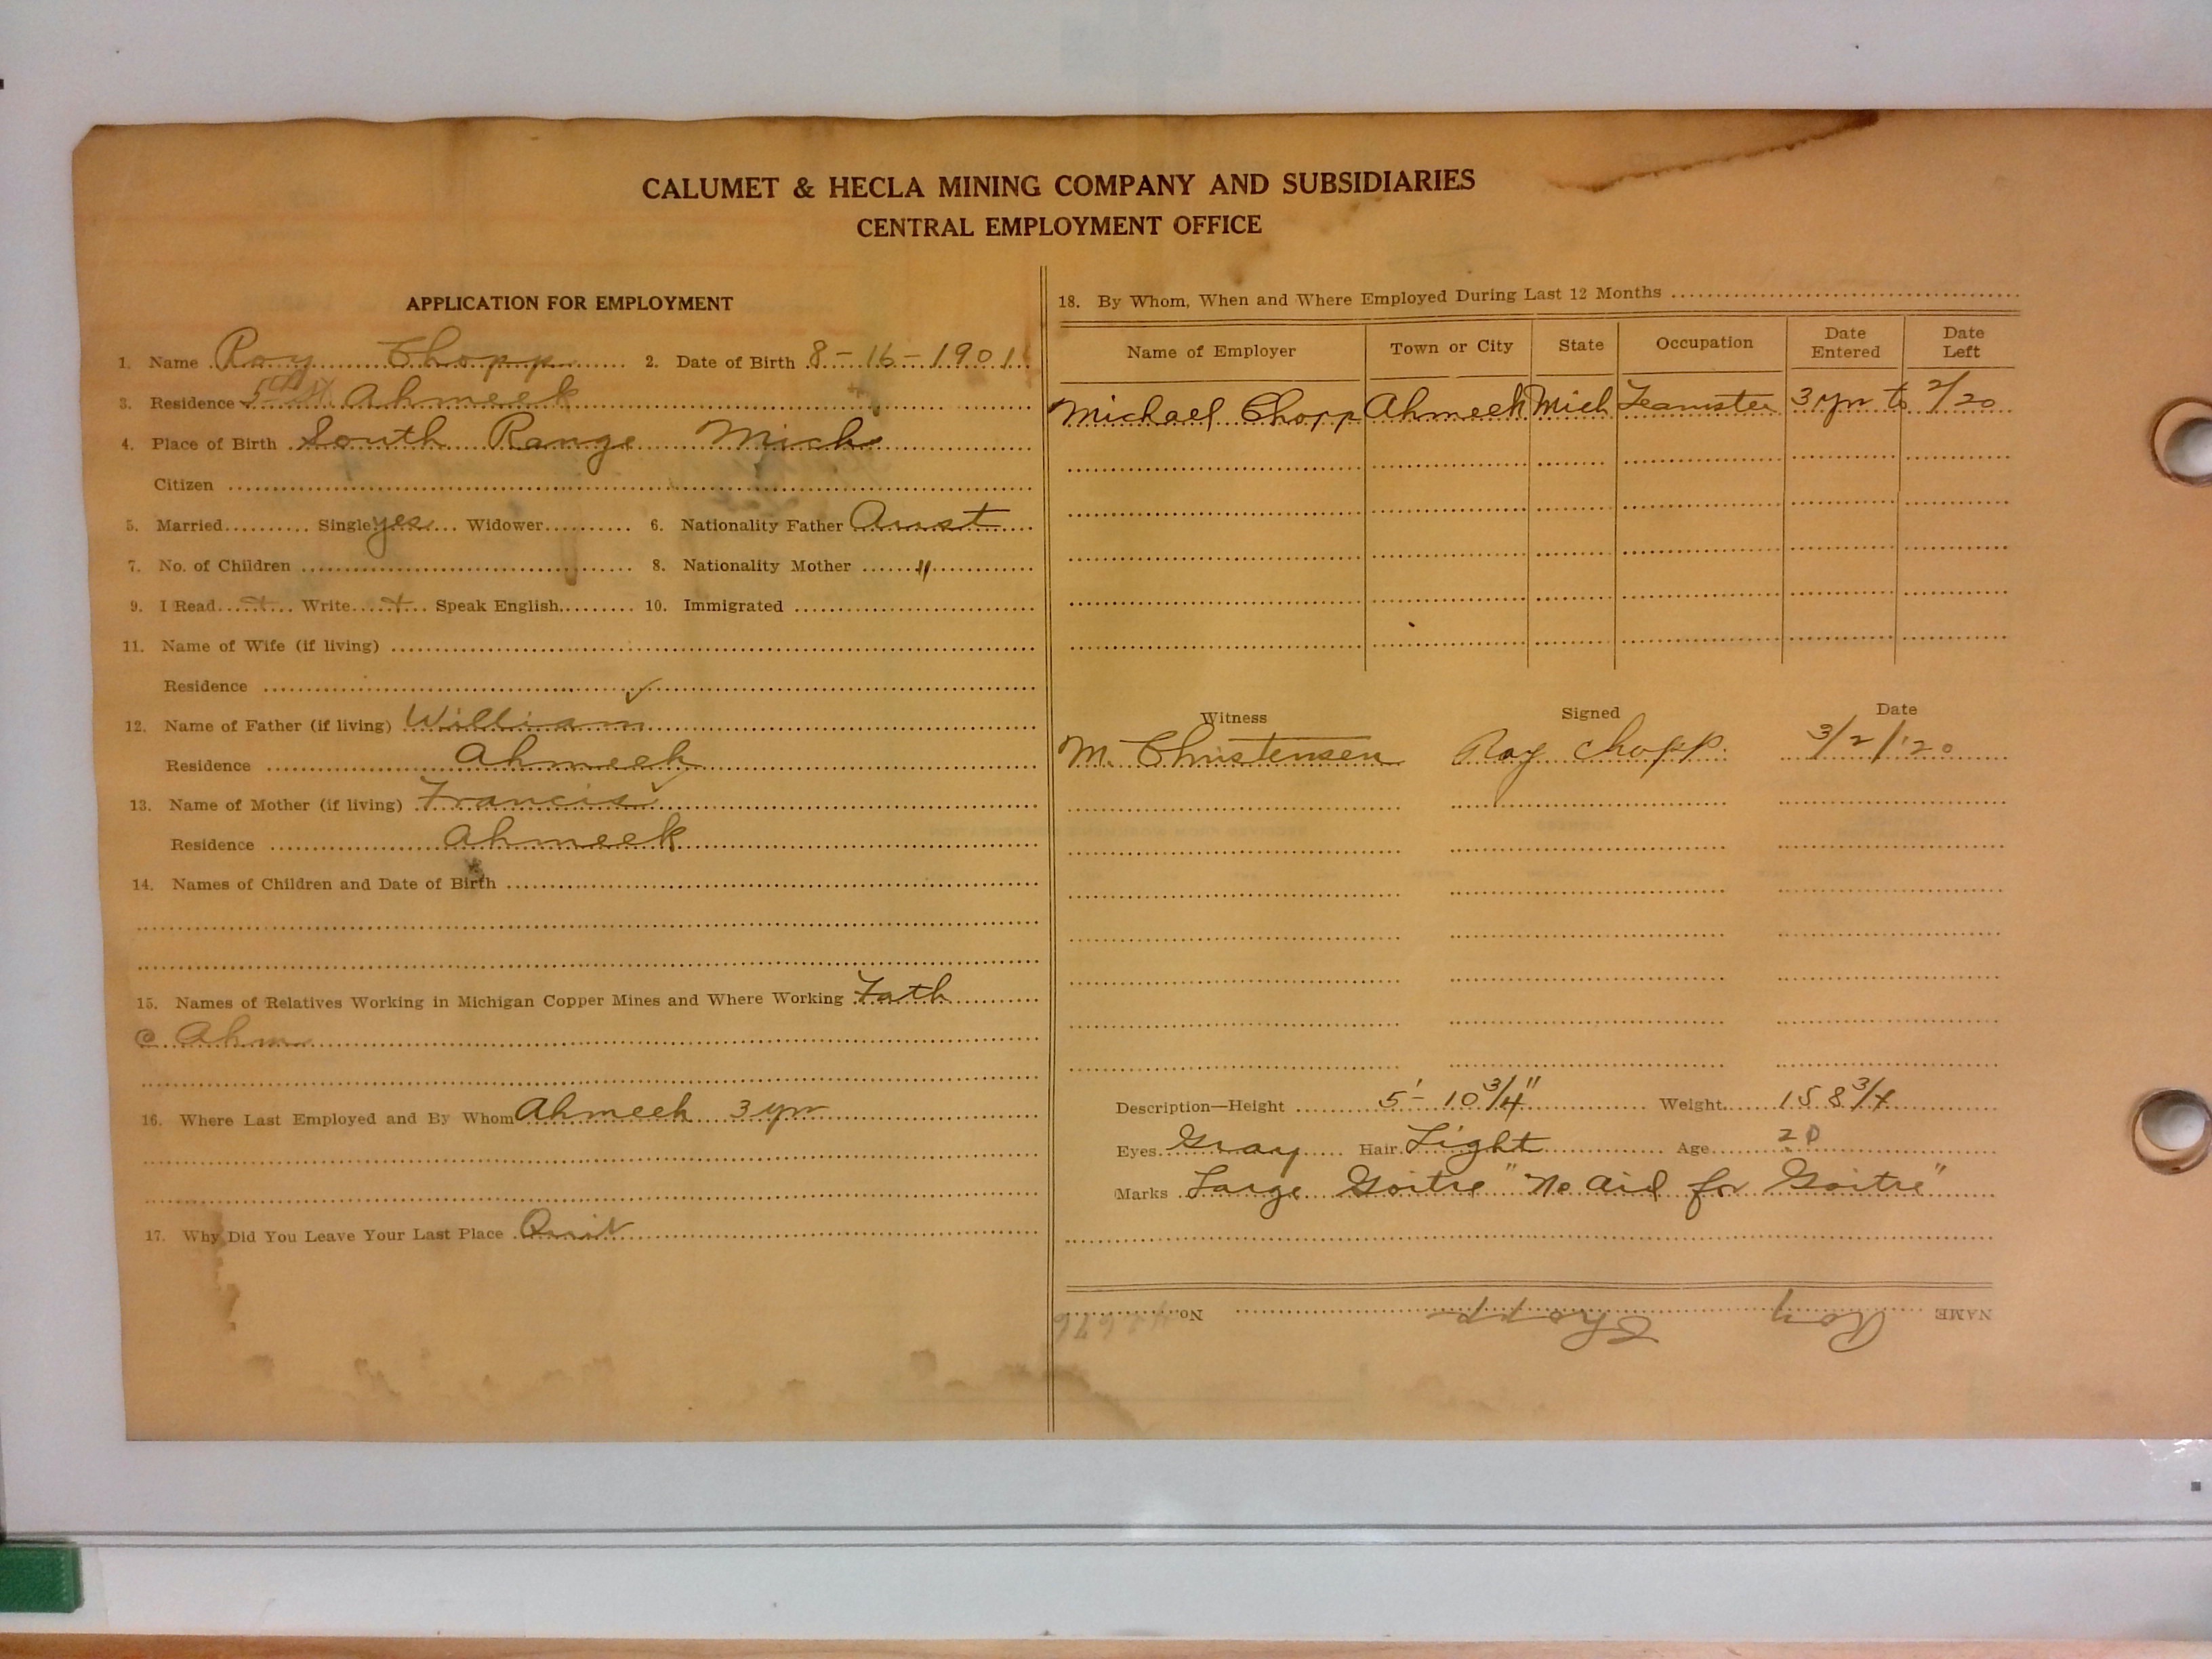 CALUMET & HECLA MINING COMPANY AND SUBSIDIARIES
CENTRAL EMPLOYMENT OFFICE
APPLICATION FOR EMPLOYMENT
1. Name Roy Chopp 2. Date of Birth 8-16-1901
3. Residence Ahmeek
4. Place of Birth South Range Mich
Citizen
5. Married Single yes Widower 6. Nationality Father Aust
7. No. of Children 8. Nationality Mother "
9. I Read + Write + Speak English 10. Immigrated
11. Name of Wife (if living)
Residence
12. Name of Father (if living) William
Residence Ahmeek
13. Name of Mother (if living) Francis
Residence Ahmeek
14. Names of Children and Date of Birth
15. Names of Relatives Working in Michigan Copper Mines and Where Working Fath
@ Ahm
16. Where Last Employed and By Whom Ahmeek 3 yrs
17. Why Did You Leave Your Last Place Quit
18. By Whom, When and Where Employed During Last 12 Months
Name of Employer Town or City State Occupation Date Entered Date Left
Michael Chopp Ahmeek Mich Teamster 3 yrs to 2/20
Witness Signed Date
M. Christensen Roy Chopp. 3/2/'20
Description—Height 5'-10 3/4" Weight 158 3/4
Eyes Gray Hair Light Age 20
Marks Large Goitre "No aid for Goitre"
NAME Roy Chopp No.